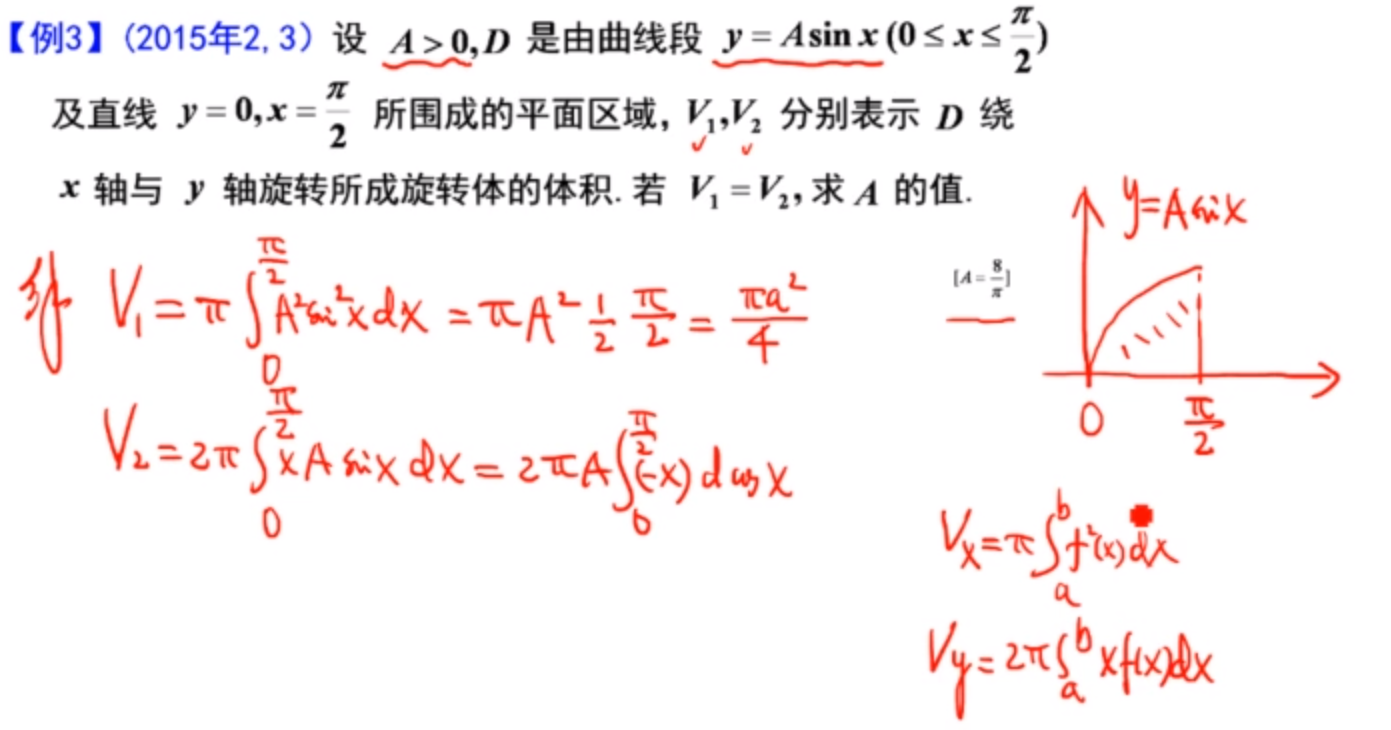 【例3】(2015年2,3) 设 A > 0, D 是由曲线段 y = A sin x (0 ≤ x ≤ π/2)
及直线 y = 0, x = π/2 所围成的平面区域, V₁,V₂ 分别表示 D 绕
x 轴与 y 轴旋转所成旋转体的体积. 若 V₁ = V₂, 求 A 的值.
y=A sin x
[A = 8/π]
解 V₁ = π∫₀^{π/2} A² sin² x dx = πA² 1/2 π/2 = πa²/4
0 π/2
V₂ = 2π∫₀^{π/2} x A sin x dx = 2πA∫₀^{π/2} (-x) d cos x
Vx = π∫ₐᵇ f²(x) dx
Vy = 2π∫ₐᵇ x f(x) dx